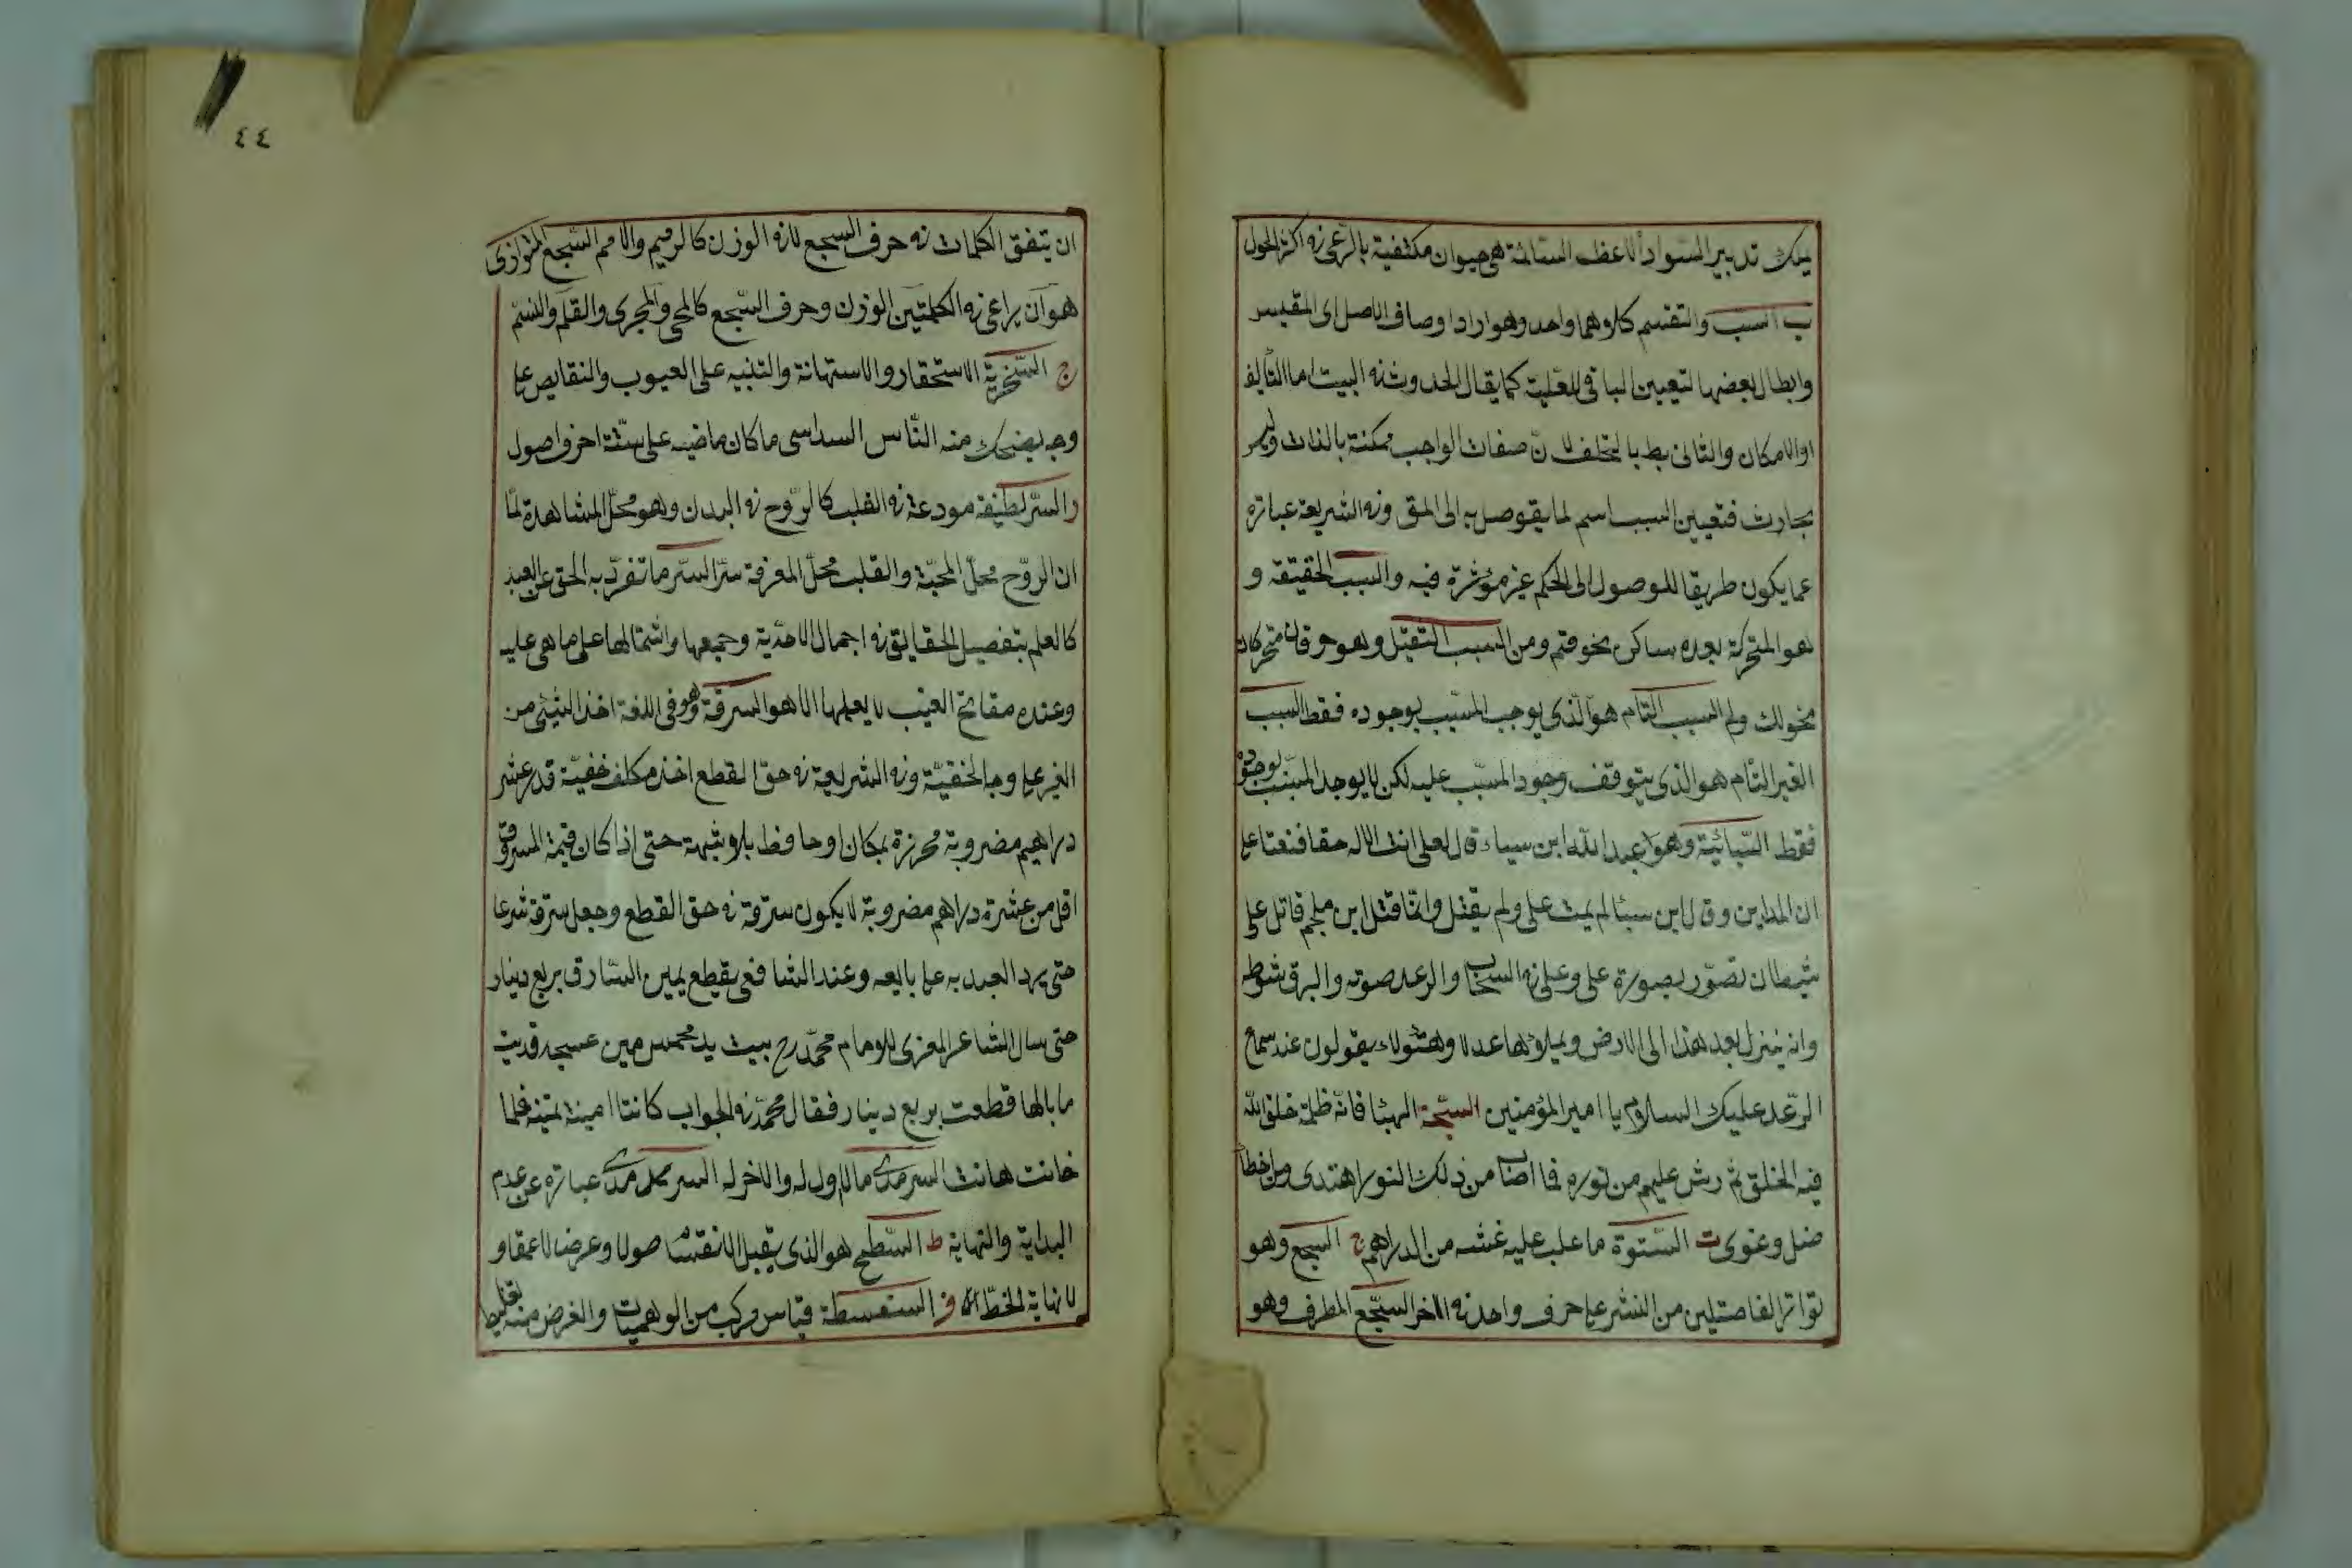 يملك تدبير السواد الاعظم السائمة هى حيوان مكتفية بالرعى فى اكثر الحول
ب السبب والتقسيم كلاهما واحد وهو ايراد اوصاف الاصل اى المقيس
وابطال بعضها لتعيين الباقى للعلية كما يقال الحدوث فى البيت اما التأليف
او الامكان والثانى بط بالتخلف لان صفات الواجب ممكنة بالذات وليس
بحارث فتعيين السبب اسم لما يتوصل به الى المق وفى الشريعة عبارة
عما يكون طريقا للوصول الى الحكم غير مؤثرة فيه والسبب الحقيقة و
هو المتحركة بعده ساكن نحو قم ومن السبب الثقيل وهو حرفان متحركان
نحو لك ولم السبب التام هو الذى يوجب المسبب بوجوده فقط السبب
الغير التام هو الذى يتوقف وجود المسبب عليه لكن لا يوجد المسبب بوجوده
فقط السبائية وهو عبد الله ابن سباء قال لعلى انت الاله حقا فنفتا على
ان المداين وقال ابن سبئا لم يمت على ولم يقتل وانما قتل ابن ملجم قاتل على
شيطان تصور بصورة على وعلى فى السحاب والرعد صوته والبرق شوطه
وانه ينزل بعد هذا الى الارض ويملؤها عدلا وهئولاء يقولون عند سماع
الرعد عليك السلام يا امير المؤمنين السبحة الهبئا فانه ظلمة خلق الله
فيه الخلق ثم رش عليهم من نوره فما اصاب من ذلك النور اهتدى ومن اخطأ
ضل وغوى ت الستوة ما غلب عليه غشه من الدراهم ج السجع وهو
تواتر الفاصتلين من النشر على حرف واحد فى الاخر السجع المطرف وهو
٤٤
ان يتفق الكلمات فى حرف السجع لا فى الوزن كالرميم والامم السجع المتوازى
هو ان يراعى فى الكلمتين الوزن وحرف السجع كالمحى والمجرى والقلم والنسم
خ السخرية الاستحقار والاستهانة والتنبيه على العيوب والنقايص على
وجه يضحك منه الناس السداسى ما كان ماضيه على ستة احرف اصول
ر السر لطيفة مودعة فى القلب كالروح فى البدن وهو محل المشاهدة لما
ان الروح محل المحبة والقلب محل المعرفة سر السر ما تفرد به الحق عن العبد
كالعلم بتفصيل الحقايق فى اجمال الاحدية وجمعها واشتمالها على ما هى عليه
وعنده مفاتح الغيب لا يعلمها الا هو السرقة وهو فى اللغة اخذ الشيئى من
الغير على وجه الخفية وفى الشريعة فى حق القطع اخذ مكلف خفية قدر عشر
دراهيم مضروبة محرزة بمكان او حافظ بلا شبهة حتى اذا كان قيمة المسروق
اقل من عشرة دراهم مضروبة لا يكون سرقة فى حق القطع وجعل سرقة شرعا
حتى يرد العبد به على بايعه وعند الشافعى يقطع يمين السارق بربع دينار
حتى سال الشاعر المعرى للامام محمد رح ببيت يد بخمس مين عسجد فديت
ما بالها قطعت بربع دينار فقال محمد فى الجواب كانتا امينة ثمينة فلما
خانت هانت السرمدى ما لا اول له والاخر له السرمدى عبارة عن عدم
البداية والنهاية ط السطح هو الذى يقبل الانقسام صولا وعرضا لا عمقا و
لا نهاية لخط ف السفسطة قياس مركب من الوهميات والغرض منه تغليط